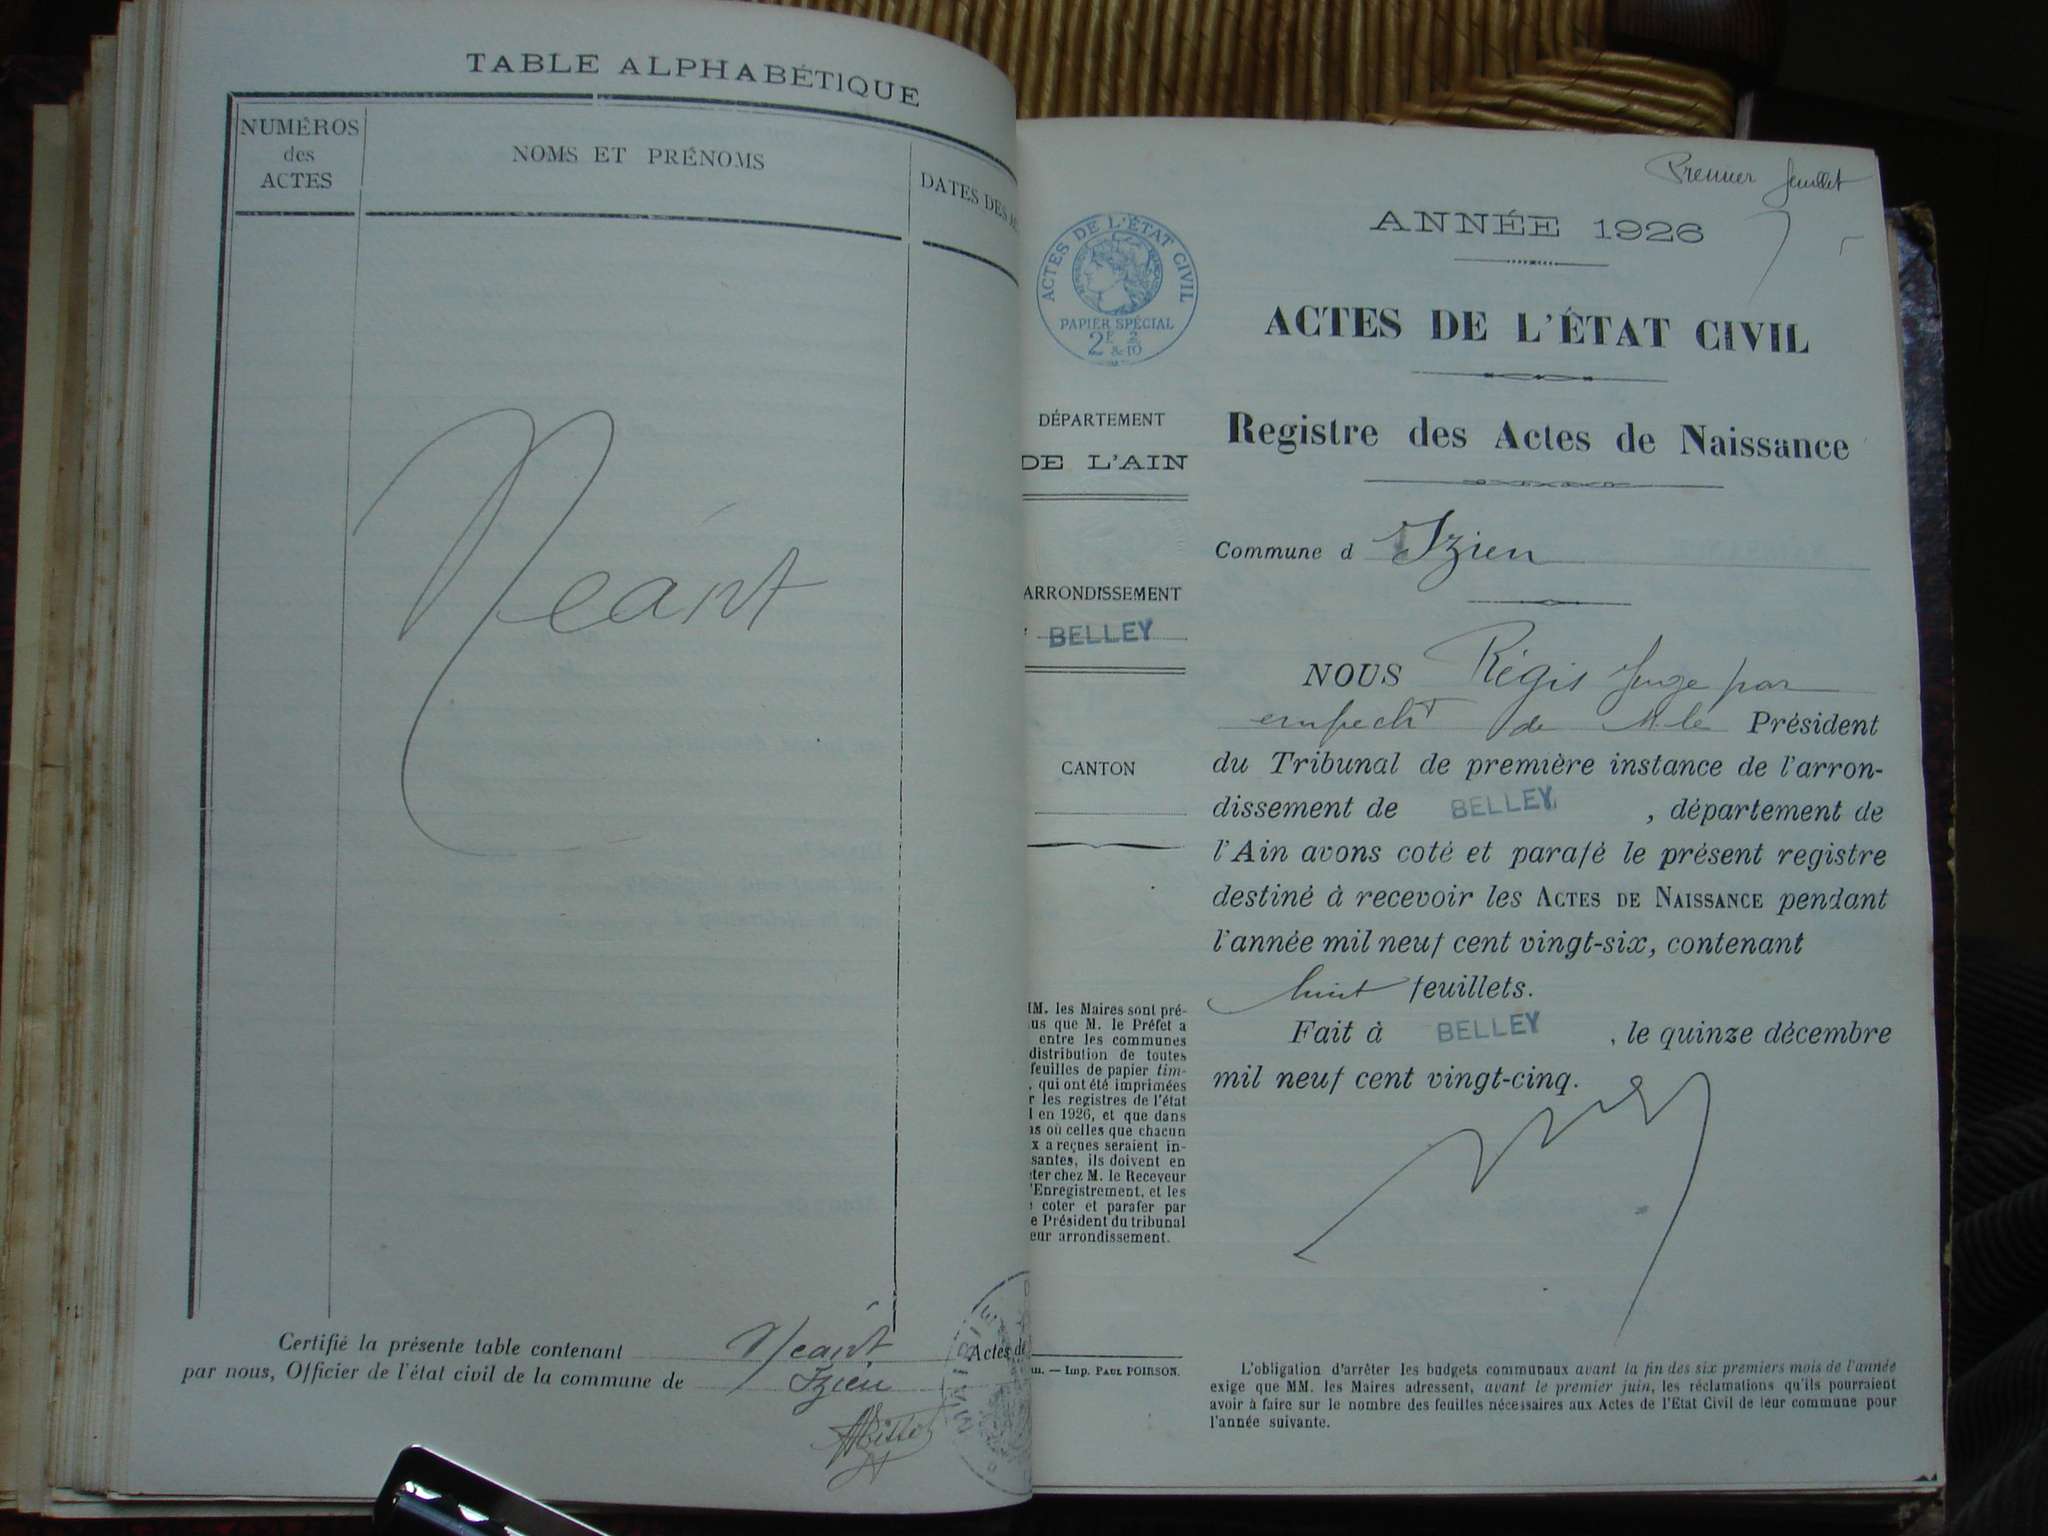 TABLE ALPHABÉTIQUE
NUMÉROS
des
ACTES
NOMS ET PRÉNOMS
DATES DES
Néant
Certifié la présente table contenant Néant
par nous, Officier de l'état civil de la commune de Izieu
Premier feuillet
ANNÉE 1926
ACTES DE L'ÉTAT CIVIL
PAPIER SPÉCIAL
2F 2/10
ACTES DE L'ÉTAT CIVIL
Registre des Actes de Naissance
DÉPARTEMENT
DE L'AIN
Commune d Izieu
ARRONDISSEMENT
BELLEY
CANTON
NOUS Régis Juge par
empecht de M. le Président
du Tribunal de première instance de l'arron-
dissement de BELLEY, département de
l'Ain avons coté et parafé le présent registre
destiné à recevoir les ACTES DE NAISSANCE pendant
l'année mil neuf cent vingt-six, contenant
huit feuillets.
Fait à BELLEY, le quinze décembre
mil neuf cent vingt-cinq.
MM. les Maires sont pré-
us que M. le Préfet a
entre les communes
distribution de toutes
feuilles de papier tim-
, qui ont été imprimées
r les registres de l'état
l en 1926, et que dans
as où celles que chacun
x a reçues seraient in-
santes, ils doivent en
ter chez M. le Receveur
l'Enregistrement, et les
coter et parafer par
e Président du tribunal
eur arrondissement.
Actes de
m. — Imp. PAUL POIRSON.
L'obligation d'arrêter les budgets communaux avant la fin des six premiers mois de l'année
exige que MM. les Maires adressent, avant le premier juin, les réclamations qu'ils pourraient
avoir à faire sur le nombre des feuilles nécessaires aux Actes de l'Etat Civil de leur commune pour
l'année suivante.